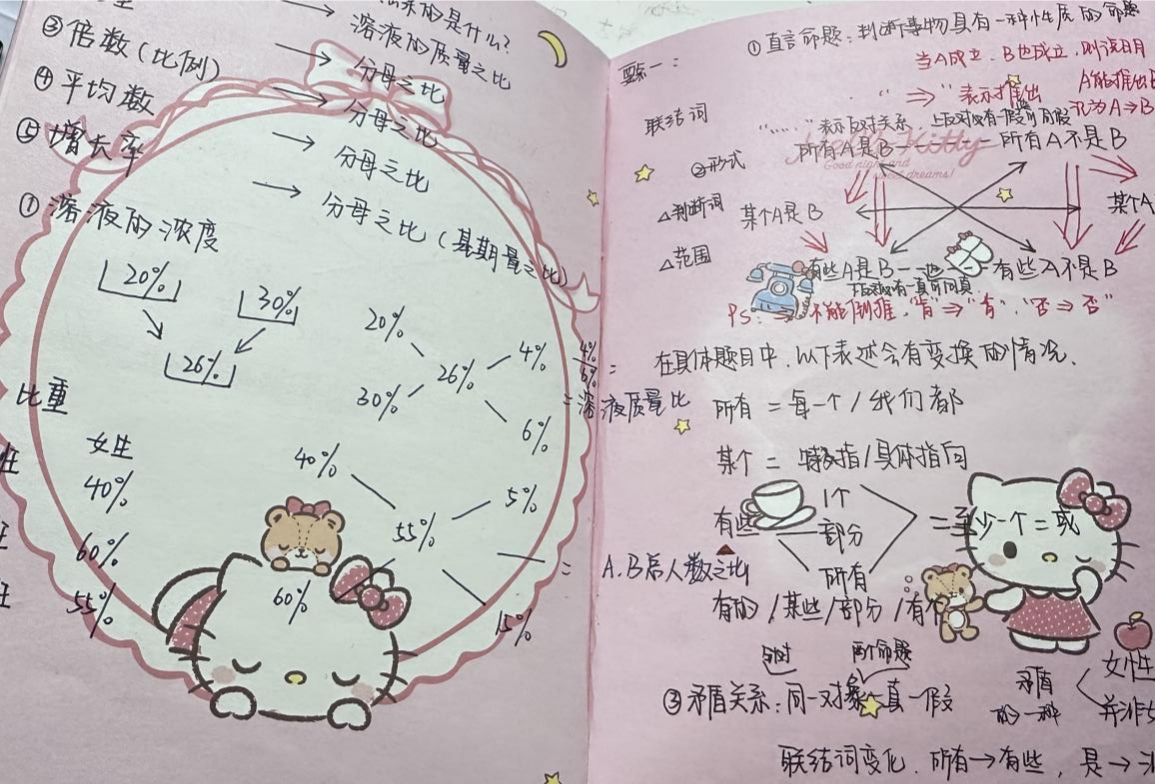 来的是什么?
溶液的质量之比
③倍数(比例)
分母之比
④平均数
分母之比
⑤增长率
分母之比
分母之比(基期量之比)
①溶液的浓度
20%
30%
26%
20%
30%
26%
4%
6%
4%
6%
=
=溶液质量比
比重
女生
40%
60%
55%
40%
60%
55%
5%
15%
=
A.B总人数之比
①直言命题:判断事物具有一种性质的命题
当A成立,B也成立,则说明
A能推出B
记为A→B
要点一:
"⇒"表示推出
联结词
"……"表示反对关系
②形式
所有A是B
所有A不是B
Hello Kitty
Good night and
sweet dreams!
△判断词
某个A是B
某个A
△范围
有些A是B
有些A不是B
PS:⇒不能倒推,"肯"⇒"肯","否⇒否"
在具体题目中,以下表述会有变换的情况.
所有=每一个/我们都
某个=特指/具体指向
有些
1个
部分
所有
=至少一个=或
有的/某些/部分/有个
同时
两个命题
③矛盾关系:同一对象一真一假
矛盾
的一种
女性
并非
联结词变化,所有→有些,是→